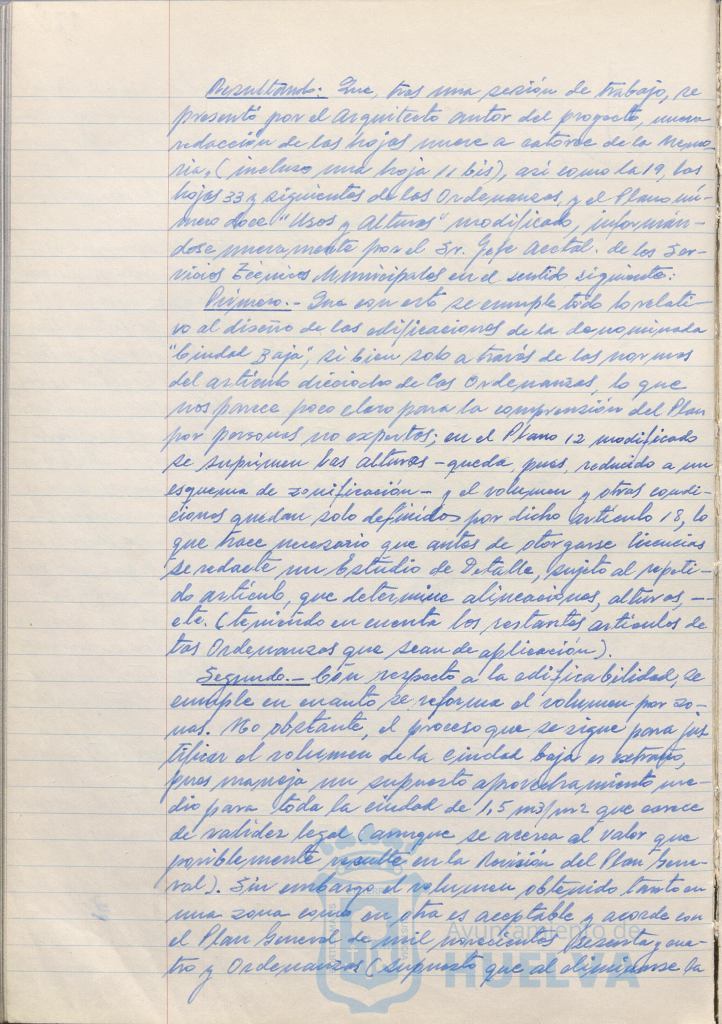 Resultando: Que, tras una sesión de trabajo, se
presentó por el Arquitecto autor del proyecto, nueva
redacción de las hojas nueve a catorce de la Memo-
ria, (incluso una hoja 11 bis), así como la 19, las
hojas 33 y siguientes de las Ordenanzas, y el Plano nú-
mero doce "Usos y Alturas" modificado, informán-
dose nuevamente por el Sr. Jefe Acctal. de los Ser-
vicios Técnicos Municipales en el sentido siguiente:
Primero.- Que con esto se cumple todo lo relati-
vo al diseño de las edificaciones de la denominada
"Ciudad Baja", si bien solo a través de las normas
del artículo dieciocho de las Ordenanzas, lo que
nos parece poco claro para la comprensión del Plan
por personas no expertas; en el Plano 12 modificado
se suprimen las alturas -queda, pues, reducido a un
esquema de zonificación- y el volumen y otras condi-
ciones quedan solo definidos por dicho artículo 18, lo
que hace necesario que antes de otorgarse licencias
se redacte un Estudio de Detalle, sujeto al repeti-
do artículo, que determine alineaciones, alturas, -
etc. (teniendo en cuenta los restantes artículos de
las Ordenanzas que sean de aplicación).
Segundo.- Con respecto a la edificabilidad, se
cumple en cuanto se reforma el volumen por zo-
nas. No obstante, el proceso que se sigue para jus
tificar el volumen de la ciudad baja es extraño,
pues maneja un supuesto aprovechamiento me-
dio para toda la ciudad de 1,5 m3/m2 que carece
de validez legal (aunque se acerca al valor que
posiblemente resulte en la Revisión del Plan Gene-
ral). Sin embargo el volumen obtenido tanto en
una zona como en otra es aceptable y acorde con
el Plan General de mil novecientos sesenta y cua-
tro y Ordenanzas (supuesto que al eliminarse la
Ayuntamiento de
HUELVA